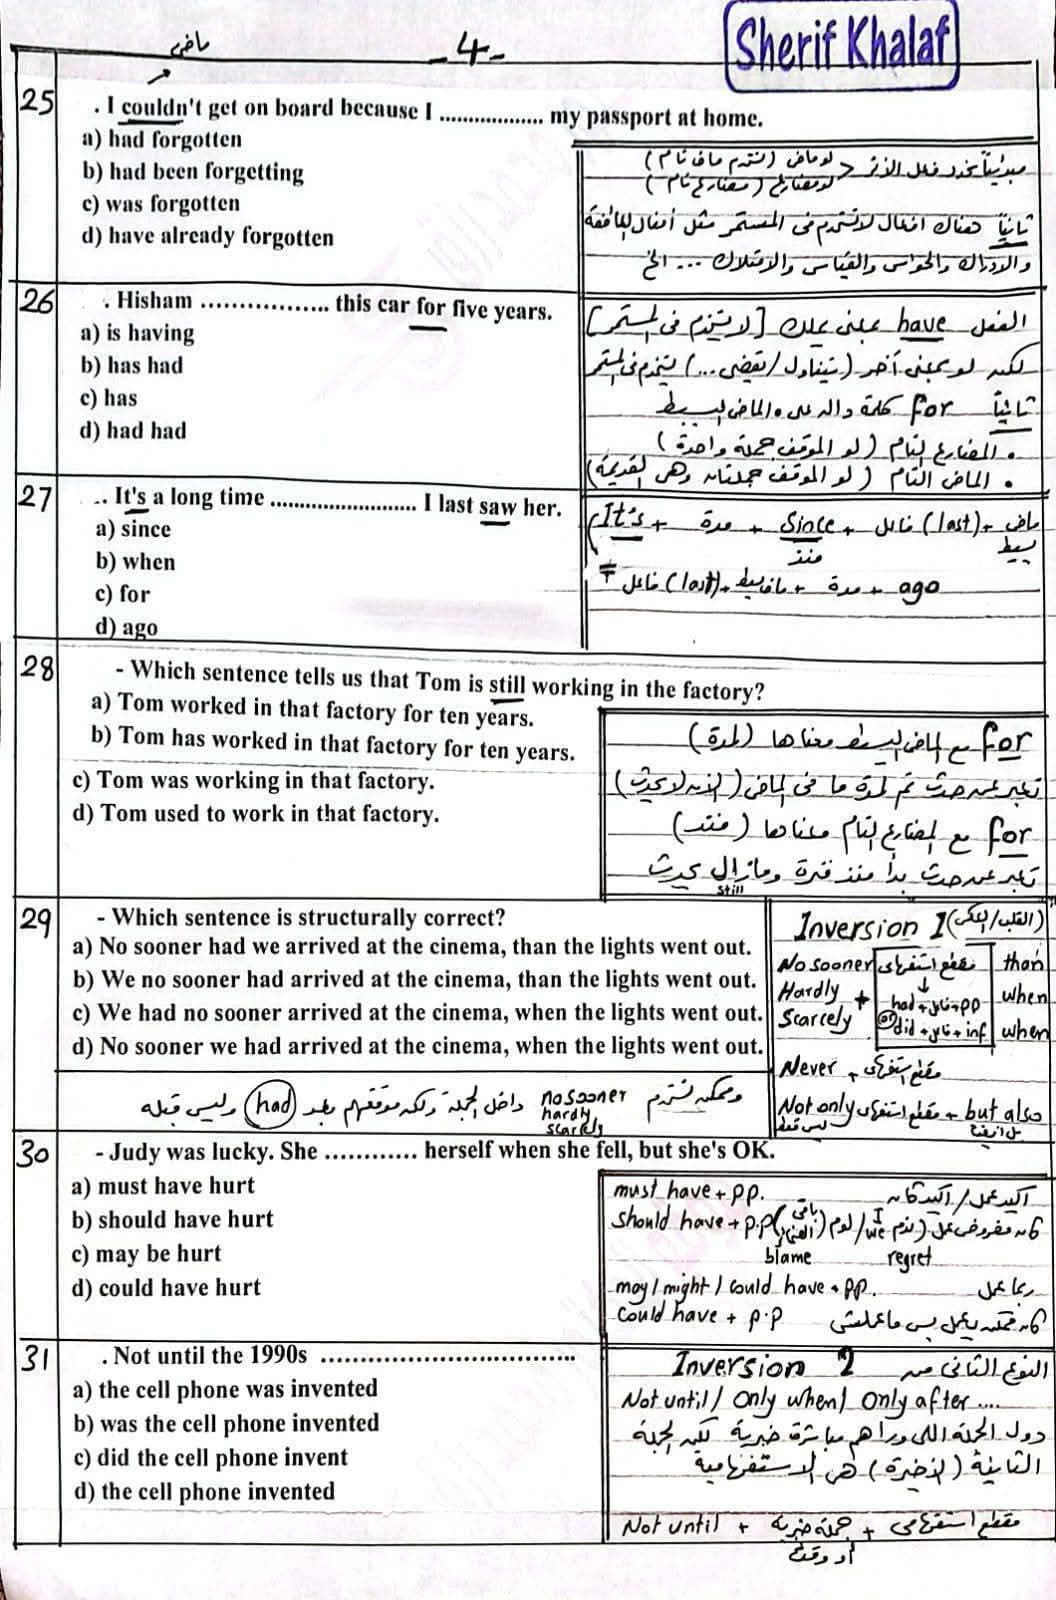 ماضى
-4-
Sherif Khalaf
25
. I couldn't get on board because I .................. my passport at home.
a) had forgotten
b) had been forgetting
c) was forgotten
d) have already forgotten
مبدئياً نحدد فعل الأثر < لو ماضى (نستخدم ماضى تام)
لو مضارع (مضارع تام)
ثانياً هناك افعال لا تستخدم فى المستمر مثل أفعال العاطفة
والادراك والحواس والقياس والامتلاك ... الخ
26
. Hisham ................ this car for five years.
a) is having
b) has had
c) has
d) had had
الفعل have بمعنى يملك [لا يستخدم فى المستمر]
لكن لو بمعنى آخر (يتناول / يقضى ...) يستخدم فى المستمر
ثانياً for كلمة دالة على • الماضى البسيط
• المضارع التام (لو الموقف جملة واحدة)
• الماضى التام (لو الموقف جملتان وهى القديمة)
27
.. It's a long time ......................... I last saw her.
a) since
b) when
c) for
d) ago
(It's + مدة + since + فاعل (last) + ماضى بسيط
منذ
فاعل (last) + ماضى بسيط + مدة + ago
28
- Which sentence tells us that Tom is still working in the factory?
a) Tom worked in that factory for ten years.
b) Tom has worked in that factory for ten years.
c) Tom was working in that factory.
d) Tom used to work in that factory.
for مع الماضى البسيط معناها (لمدة)
تعبر عن حدث تم لمدة ما فى الماضى (الان لا يحدث)
for مع المضارع التام معناها (منذ)
تعبر عن حدث بدأ منذ فترة ومازال يحدث
still
29
- Which sentence is structurally correct?
a) No sooner had we arrived at the cinema, than the lights went out.
b) We no sooner had arrived at the cinema, than the lights went out.
c) We had no sooner arrived at the cinema, when the lights went out.
d) No sooner we had arrived at the cinema, when the lights went out.
Inversion 1 (القلب/العكس)
No sooner مقطع استفهامى than
Hardly + had + فاعل + pp when
Scarcely or did + فاعل + inf when
Never + مقطع استفهامى
Not only مقطع استفهامى + but also
ليس فقط بل ايضا
وممكن نستخدم no sooner hardly scarcely داخل الجملة ولكن موقعهم بعد (had) وليس قبله
30
- Judy was lucky. She ............ herself when she fell, but she's OK.
a) must have hurt
b) should have hurt
c) may be hurt
d) could have hurt
must have + pp. اكيد عمل / اكيد كان
should have + p.p كان مفروض عمل (ندم I we / لوم (باقى الضمائر
blame regret
may / might / could have + pp. ربما عمل
could have + p.p كان ممكن يعمل بس ماعملش
31
. Not until the 1990s ...................................
a) the cell phone was invented
b) was the cell phone invented
c) did the cell phone invent
d) the cell phone invented
النوع الثانى من Inversion 2
Not until / Only when / Only after ....
دول الجملة اللى وراهم مباشرة خبرية لكن الجملة
الثانية (الأخيرة) هى الاستفهامية
Not until + جملة خبرية + مقطع استفهامى
أو وقت